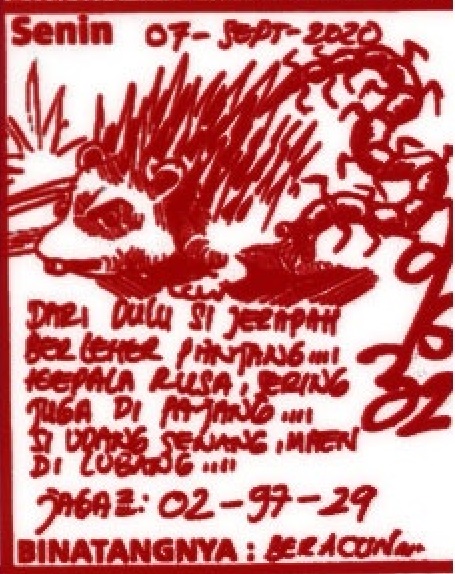 Senin 07-SEPT-2020
DARI DULU SI JERAPAH
BERLEHER PANJANG....
KEPALA RUSA, SERING
JUGA DI PAJANG....
SI UDANG SENANG, MAEN
DI LUBANG....
JAGA2: 02-97-29
BINATANGNYA : BERACUN..